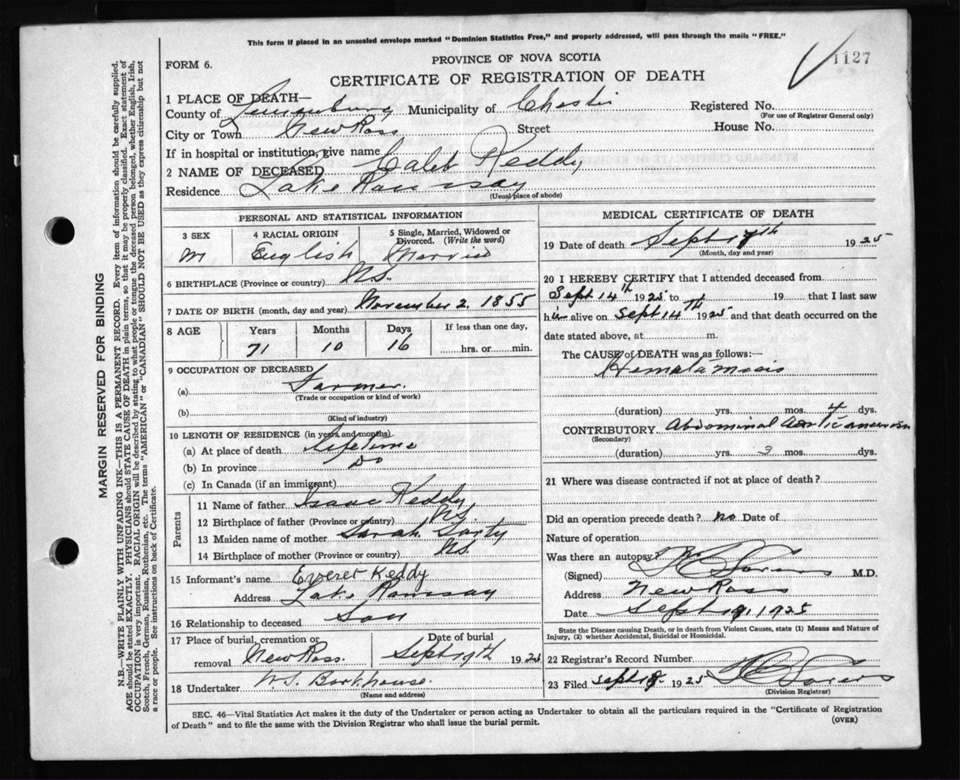 This form if placed in an unsealed envelope marked "Dominion Statistics Free," and properly addressed, will pass through the mails "FREE."
1127
FORM 6.
PROVINCE OF NOVA SCOTIA
CERTIFICATE OF REGISTRATION OF DEATH
1 PLACE OF DEATH—
County of Lunenburg Municipality of Chester Registered No.
(For use of Registrar General only)
City or Town New Ross Street House No.
If in hospital or institution, give name
2 NAME OF DECEASED Caleb Keddy
Residence Lake Ramsay
(Usual place of abode)
PERSONAL AND STATISTICAL INFORMATION
3 SEX
M
4 RACIAL ORIGIN
English
5 Single, Married, Widowed or Divorced. (Write the word)
Married
6 BIRTHPLACE (Province or country) N.S.
7 DATE OF BIRTH (month, day and year) November 2, 1855
8 AGE Years Months Days If less than one day,
71 10 16 hrs. or min.
9 OCCUPATION OF DECEASED
(a) Farmer.
(Trade or occupation or kind of work)
(b)
(Kind of industry)
10 LENGTH OF RESIDENCE (in years and months)
(a) At place of death Lifetime
(b) In province Do
(c) In Canada (if an immigrant)
Parents
11 Name of father Isaac Keddy
12 Birthplace of father (Province or country) N.S.
13 Maiden name of mother Sarah
14 Birthplace of mother (Province or country) N.S.
15 Informant's name Everet Keddy
Address Lake Ramsay
16 Relationship to deceased Son
17 Place of burial, cremation or removal New Ross.
Date of burial
Sept 19th 192
18 Undertaker W.S. Barkhouse.
(Name and address)
MEDICAL CERTIFICATE OF DEATH
19 Date of death Sept 1925
(Month, day and year)
20 I HEREBY CERTIFY that I attended deceased from
Sept 14th 1925 to 19 that I last saw
h alive on Sept 14th 1925 and that death occurred on the
date stated above, at m.
The CAUSE of DEATH was as follows:—
Hematamesis
(duration) yrs. mos. 4 dys.
CONTRIBUTORY Abdominal Aortic
(Secondary)
(duration) yrs. mos. dys.
21 Where was disease contracted if not at place of death?
Did an operation precede death? no Date of
Nature of operation
Was there an autopsy?
(Signed) M.D.
Address New Ross
Date Sept 1925
State the Disease causing Death, or in death from Violent Causes, state (1) Means and Nature of
Injury, (2) whether Accidental, Suicidal or Homicidal.
22 Registrar's Record Number
23 Filed Sept 1925
(Division Registrar)
SEC. 46—Vital Statistics Act makes it the duty of the Undertaker or person acting as Undertaker to obtain all the particulars required in the "Certificate of Registration
of Death" and to file the same with the Division Registrar who shall issue the burial permit.
(OVER)
MARGIN RESERVED FOR BINDING
N.B.—WRITE PLAINLY WITH UNFADING INK—THIS IS A PERMANENT RECORD. Every item of information should be carefully supplied.
AGE should be stated EXACTLY. PHYSICIANS should STATE CAUSE OF DEATH in plain terms, so that it may be properly classified. Exact statement of
OCCUPATION is very important. RACIAL ORIGIN will be described by stating to what people or tongue the deceased person belonged, whether English, Irish,
Scotch, French, German, Russian, Ruthenian, etc. The terms "AMERICAN" or "CANADIAN" SHOULD NOT BE USED as they express citizenship but not
a race or people. See instructions on back of Certificate.